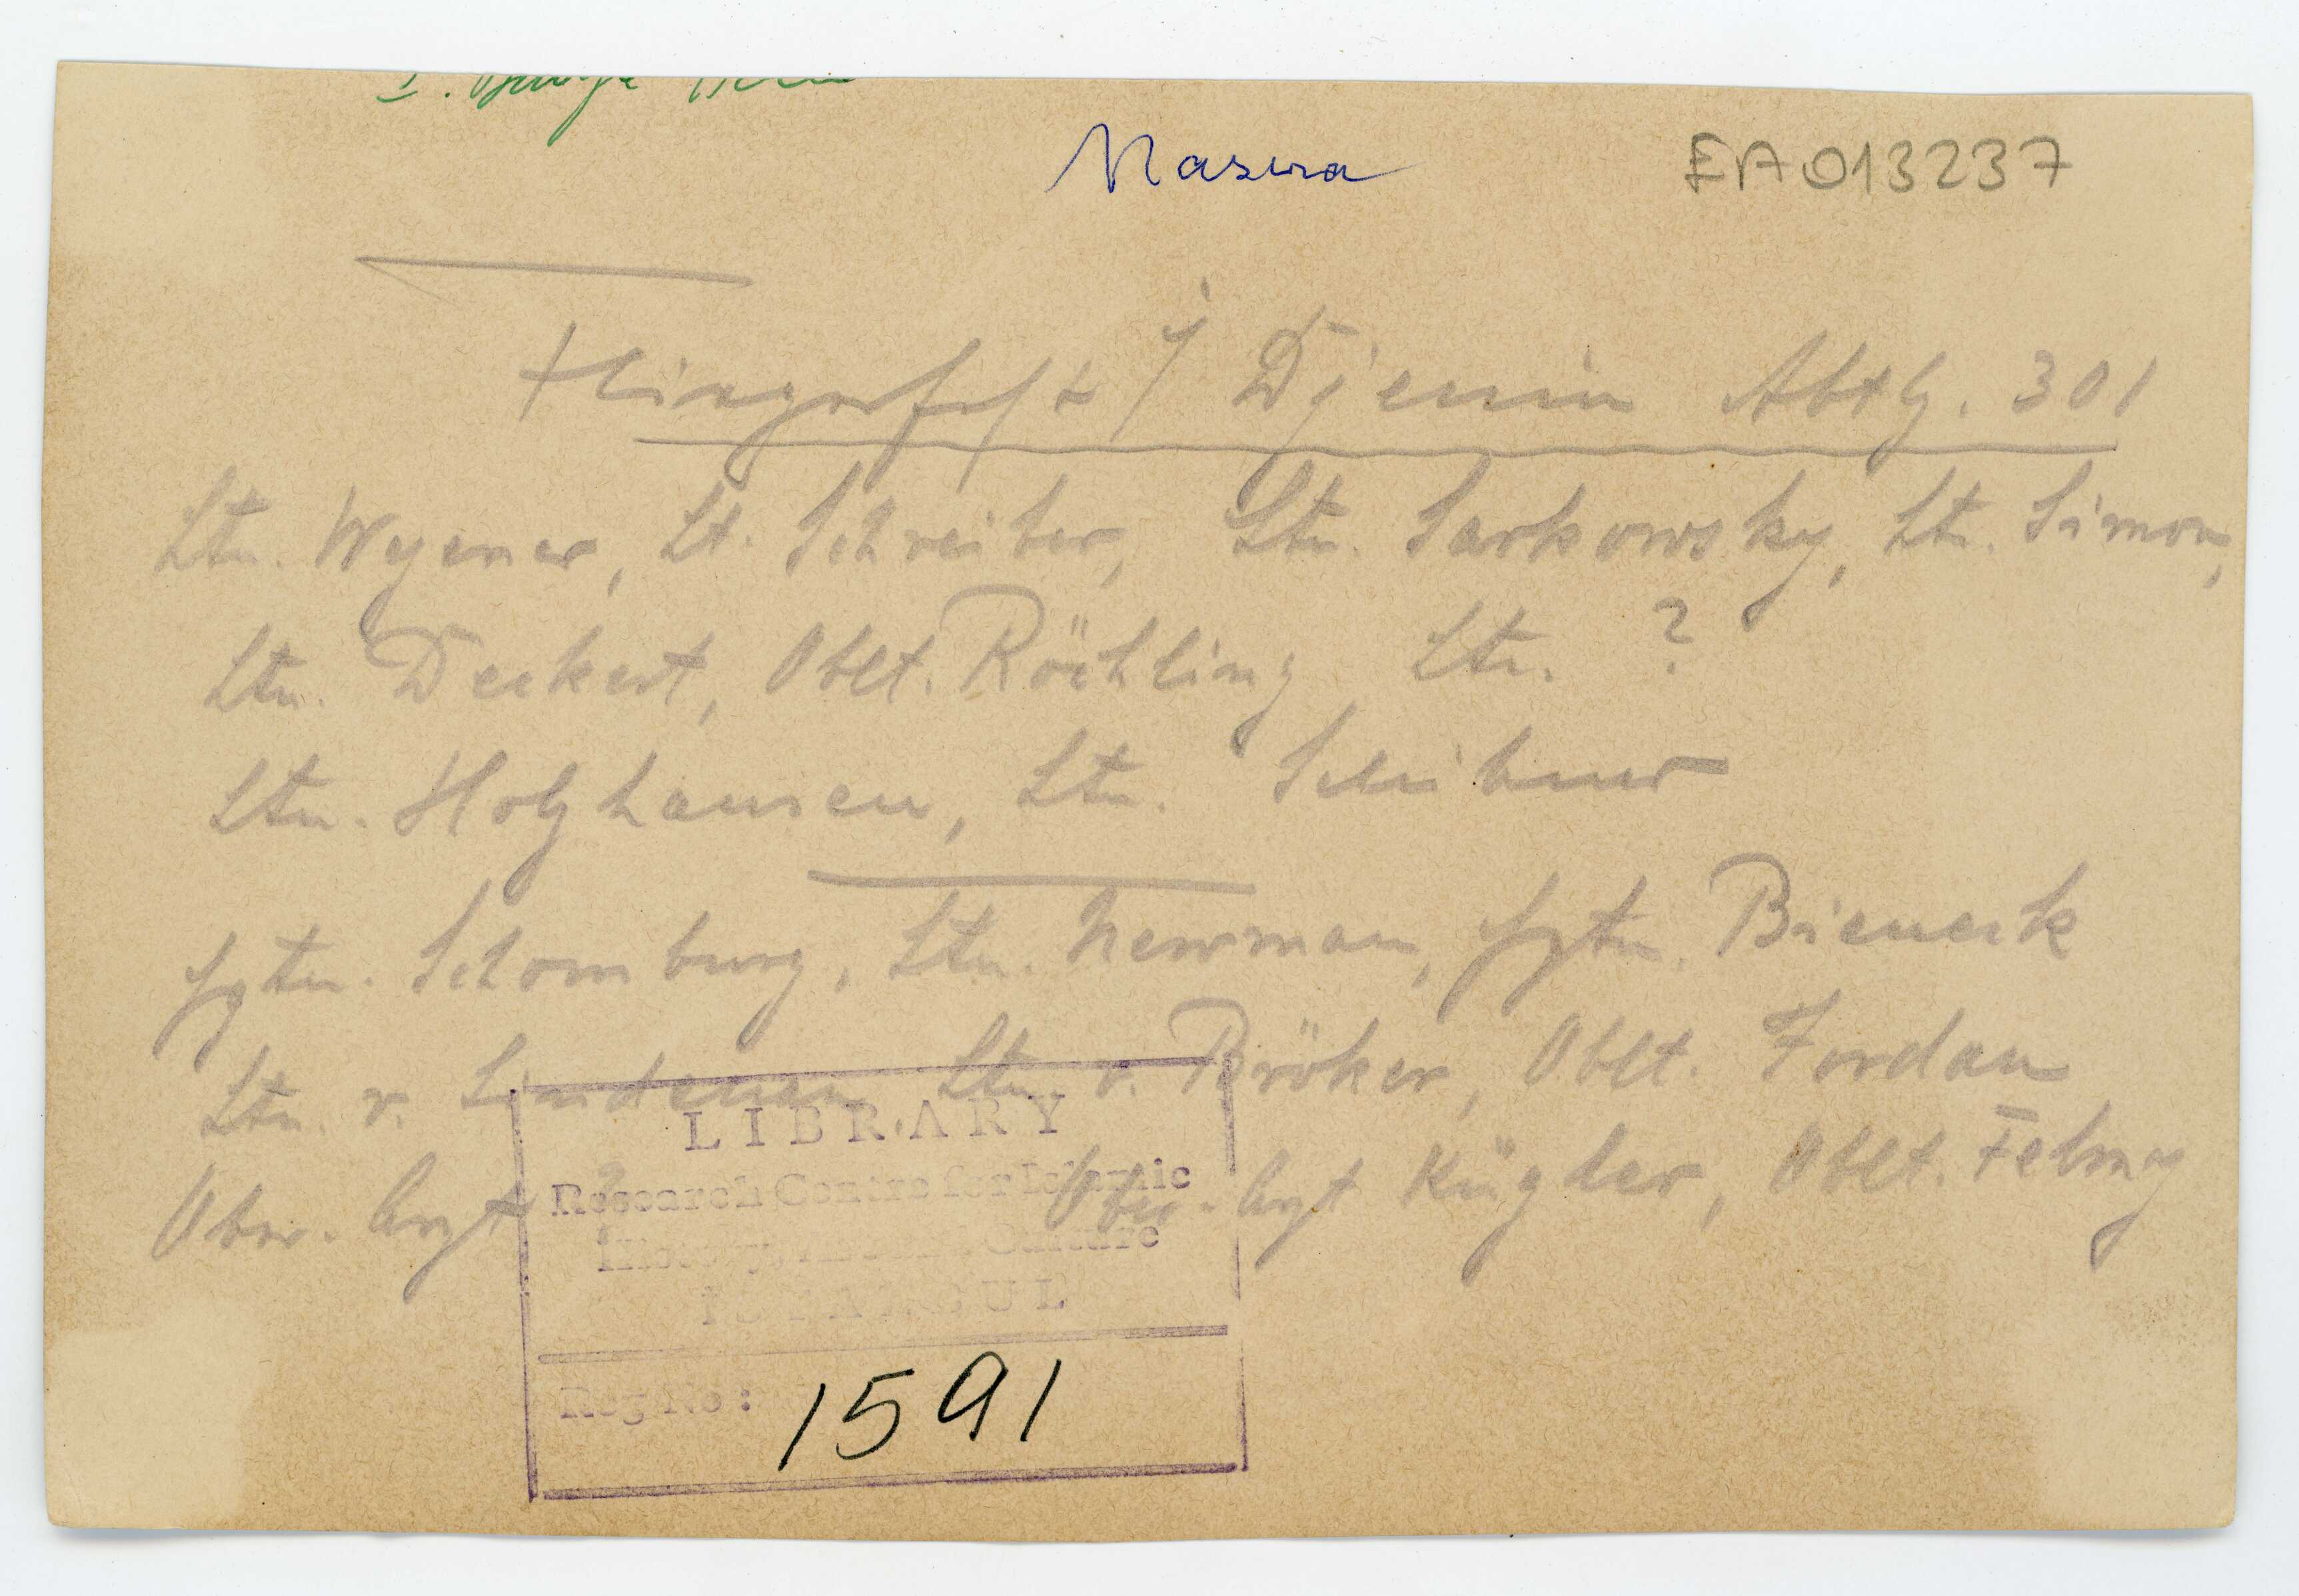 Nasura
EA013237
Djenin Abtlg. 301
Ltn. Wegener, Lt. Schreiber, Ltn. Sarkowsky, Lt. Simon,
Ltn. Deckert, Oblt. Röchling Ltn. ?
Ltn. Holzhausen, Ltn.
Hptm. Schomburg, Ltn. Newman, Hptm. Bieneck
Ltn. v. Lindenau Ltn. v. Bröker, Oblt. Jordan
Ober. Arzt ? Ober. Arzt Kügler, Oblt. Felmy
LIBRARY
Research Centre for Islamic
History, Culture
ISTANBUL
Reg No: 1591